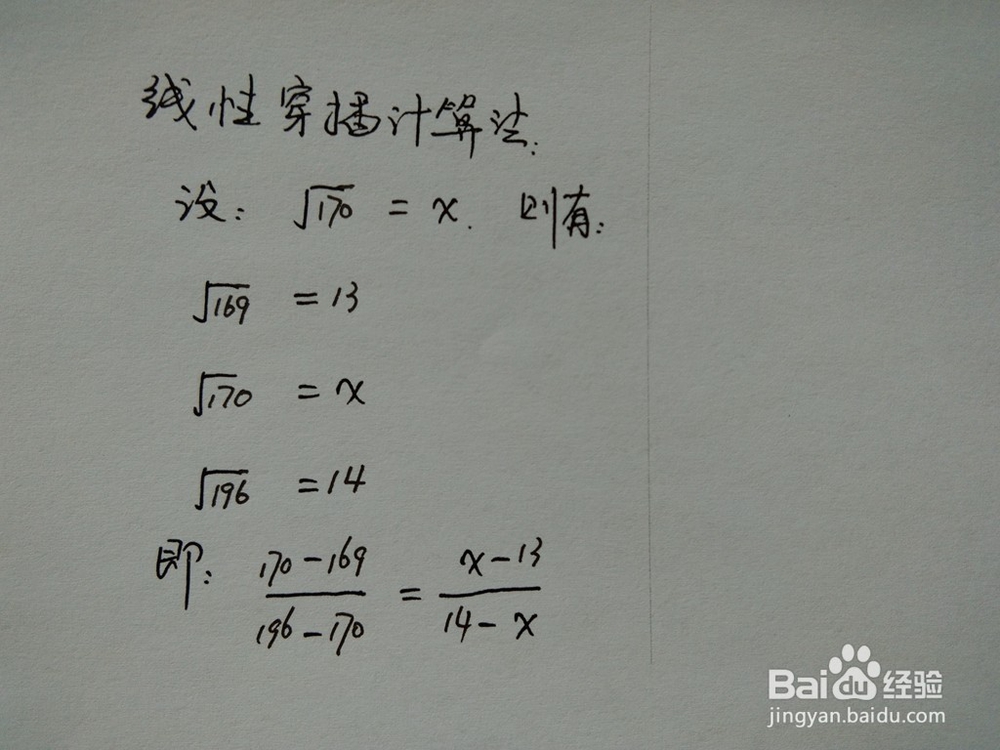 线性穿插计算法:
设: √170 = x. 则有:
√169 = 13
√170 = x
√196 = 14
即: (170-169)/(196-170) = (x-13)/(14-x)
Baidu经验
jingyan.baidu.com